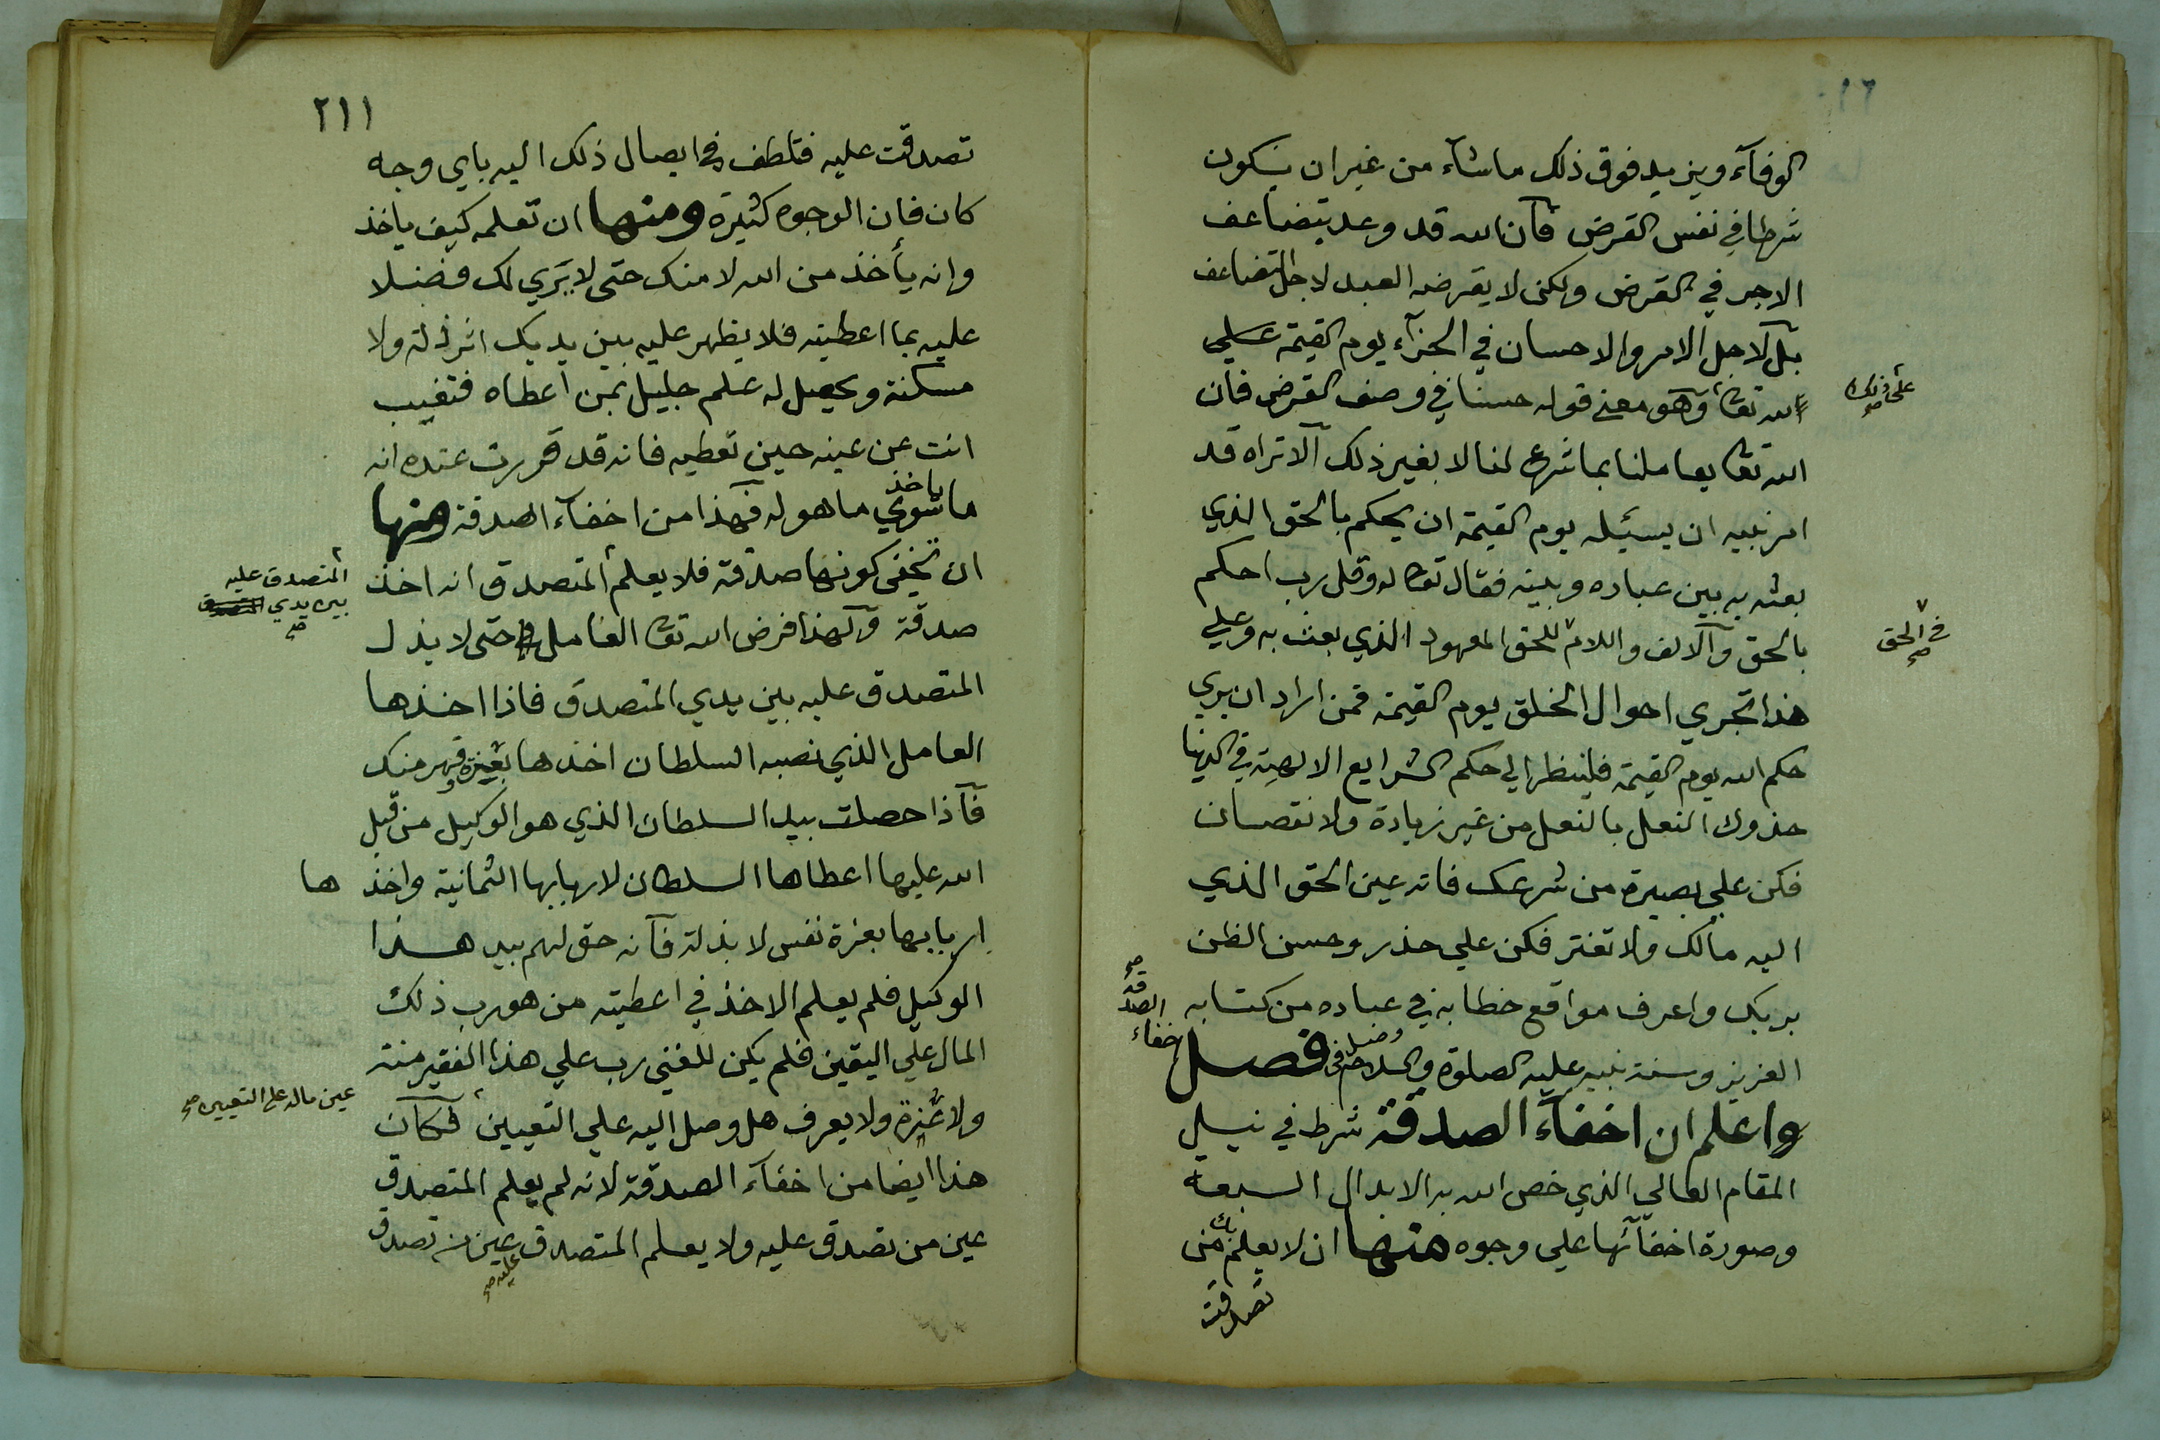 الوفآء ويزيد فوق ذلك ماشآء من غير ان يكون
شرطا في نفس القرض فآن الله قد وعد بتضاعف
الاجر في القرض ولكن لا يقرضه العبد لاجل التضاعف
بل لاجل الامر والاحسان في الجزآء يوم القيمة
الله تعا وهو معنى قوله حسنا في وصف القرض فان
على ذلك صح
الله تعا يعاملنا بما شرع لنا لا بغير ذلك الا تراه قد
امر نبيه ان يسئله يوم القيمة ان يحكم بالحق الذي
بعثه به بين عباده وبينه فقال تعا له وقل رب احكم
بالحق والالف واللام للحق المعهود الذي بعث به وعلى
في الحق صح
هذا تجري احوال الخلق يوم القيمة فمن اراد ان يرى
حكم الله يوم القيمة فلينظر الى حكم الشرايع الالهية في الدنيا
حذوك النعل بالنعل من غير زيادة ولا نقصان
فكن على بصيرة من شرعك فانه عين الحق الذي
اليه مآلك ولا تغتر فكن على حذر وحسن الظن
بربك واعرف مواقع خطابه في عباده من كتابه
العزيز وسنة نبيه عليه الصلوة والسلام وصل في فصل
اخفاء الصدقة صح
واعلم ان اخفآء الصدقة شرط في نيل
المقام العالي الذي خص الله به الابدال السبعة
وصورة اخفآئها على وجوه منها ان لا يعلم بك من
تصدقت
٢١١
تصدقت عليه فتلطف في ايصال ذلك اليه باي وجه
كان فان الوجوه كثيرة ومنها ان تعلمه كيف ياخذ
وانه يأخذ من الله لا منك حتى لا يرى لك فضلا
عليه بما اعطيته فلا يظهر عليه بين يديك اثر ذلة ولا
مسكنة ويحصل له علم جليل بمن اعطاه فتغيب
انت عن عينه حين تعطيه فانه قد قررت عنده انه
ما سوى ياخذ ما هو له فهذا من اخفآء الصدقة ومنها
ان تخفي كونها صدقة فلا يعلم المتصدق انه اخذ
المتصدق عليه
بين يدي المتصدق صح
صدقة ولهذا فرض الله تعا العامل حتى لا يذل
المتصدق عليه بين يدي المتصدق فاذا اخذها
العامل الذي نصبه السلطان اخذها بعزة وقهر منك
فاذا حصلت بيد السلطان الذي هو الوكيل من قبل
الله عليها اعطاها السلطان لاربابها الثمانية واخذها
اربابها بعزة نفس لا بذلة فآنه حق لهم بيد هذا
الوكيل فلم يعلم الاخذ في اعطيته من هو رب ذلك
المال على اليقين فلم يكن للغني رب على هذا الفقير منة
ولا عزة ولا يعرف هل وصل اليه على التعيين فكان
عين ماله على التعيين صح
هذا ايضا من اخفآء الصدقة لانه لم يعلم المتصدق
عين من تصدق عليه ولا يعلم المتصدق عليه صح عين من تصدق